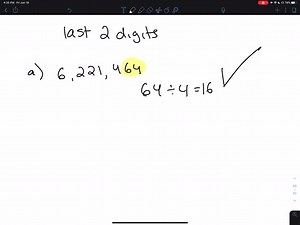 last 2 digits
a) 6,221,464
64÷4=16